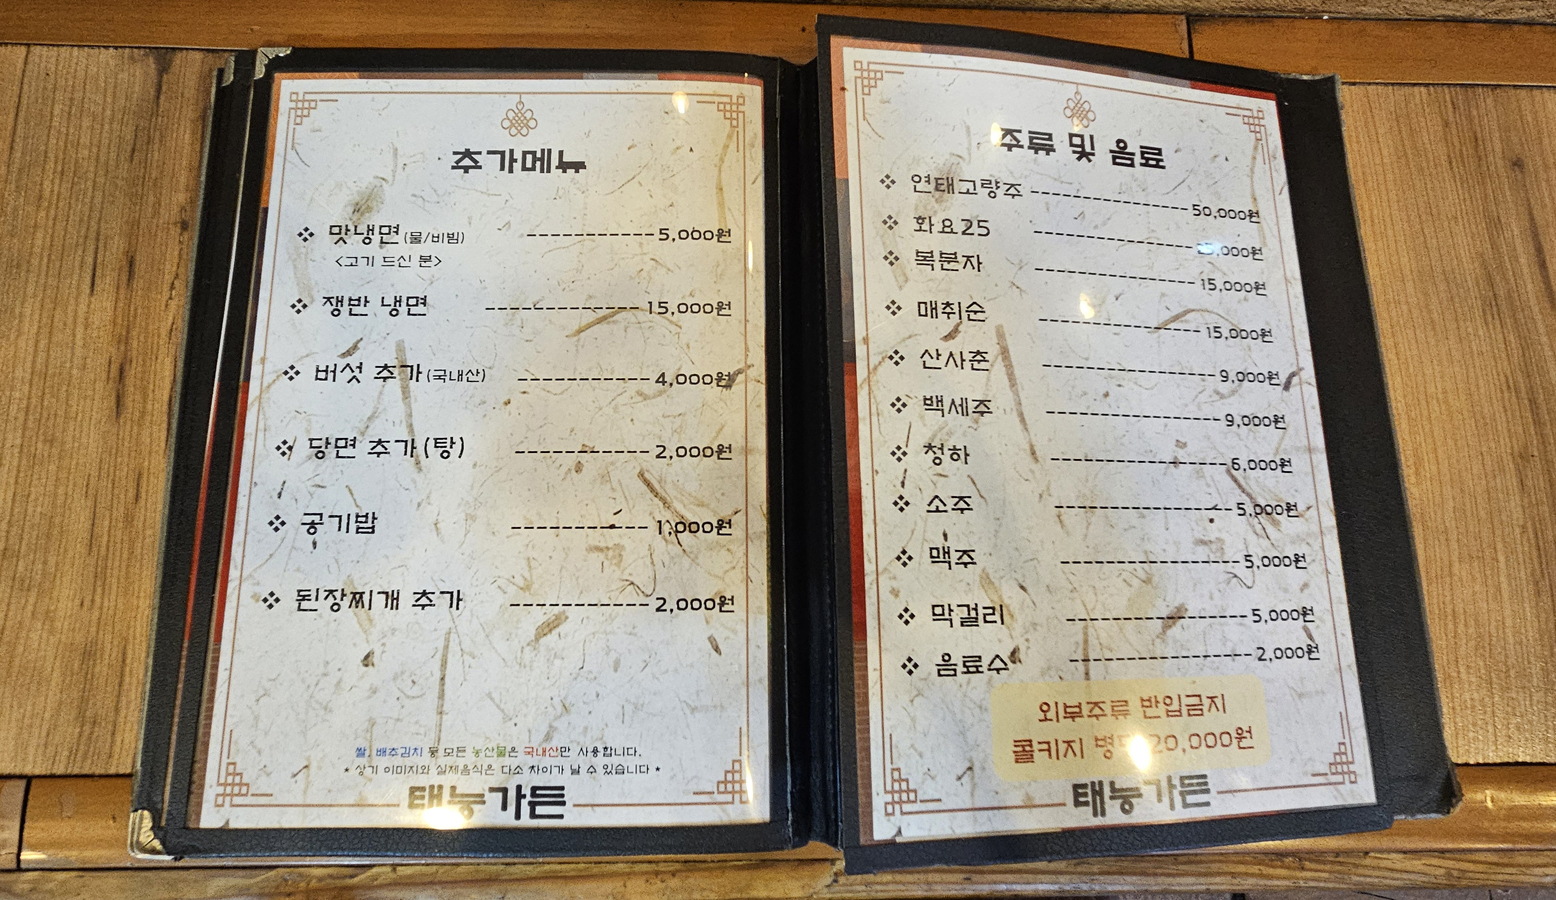 추가메뉴
맛냉면(물/비빔) 5,000원
<고기 드신 분>
쟁반 냉면 15,000원
버섯 추가(국내산) 4,000원
당면 추가(탕) 2,000원
공기밥 1,000원
된장찌개 추가 2,000원
쌀, 배추김치 등 모든 농산물은 국내산만 사용합니다.
* 상기 이미지와 실제음식은 다소 차이가 날 수 있습니다 *
태능가든
주류 및 음료
연태고량주 50,000원
화요25 ,000원
복분자 15,000원
매취순 15,000원
산사춘 9,000원
백세주 9,000원
청하 6,000원
소주 5,000원
맥주 5,000원
막걸리 5,000원
음료수 2,000원
외부주류 반입금지
콜키지 20,000원
태능가든